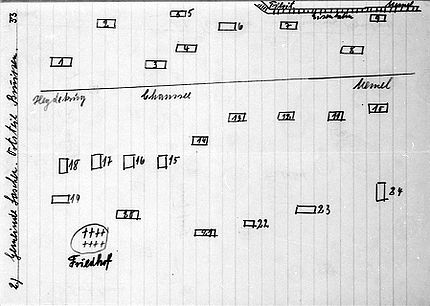 33
2) Gemeinde
Tilsit
Memel
Eisenbahn
1
2
3
4
5
6
7
8
9
Heydekrug
Chaussee
Memel
10
11
12
13
14
15
16
17
18
19
20
21
22
23
24
Friedhof